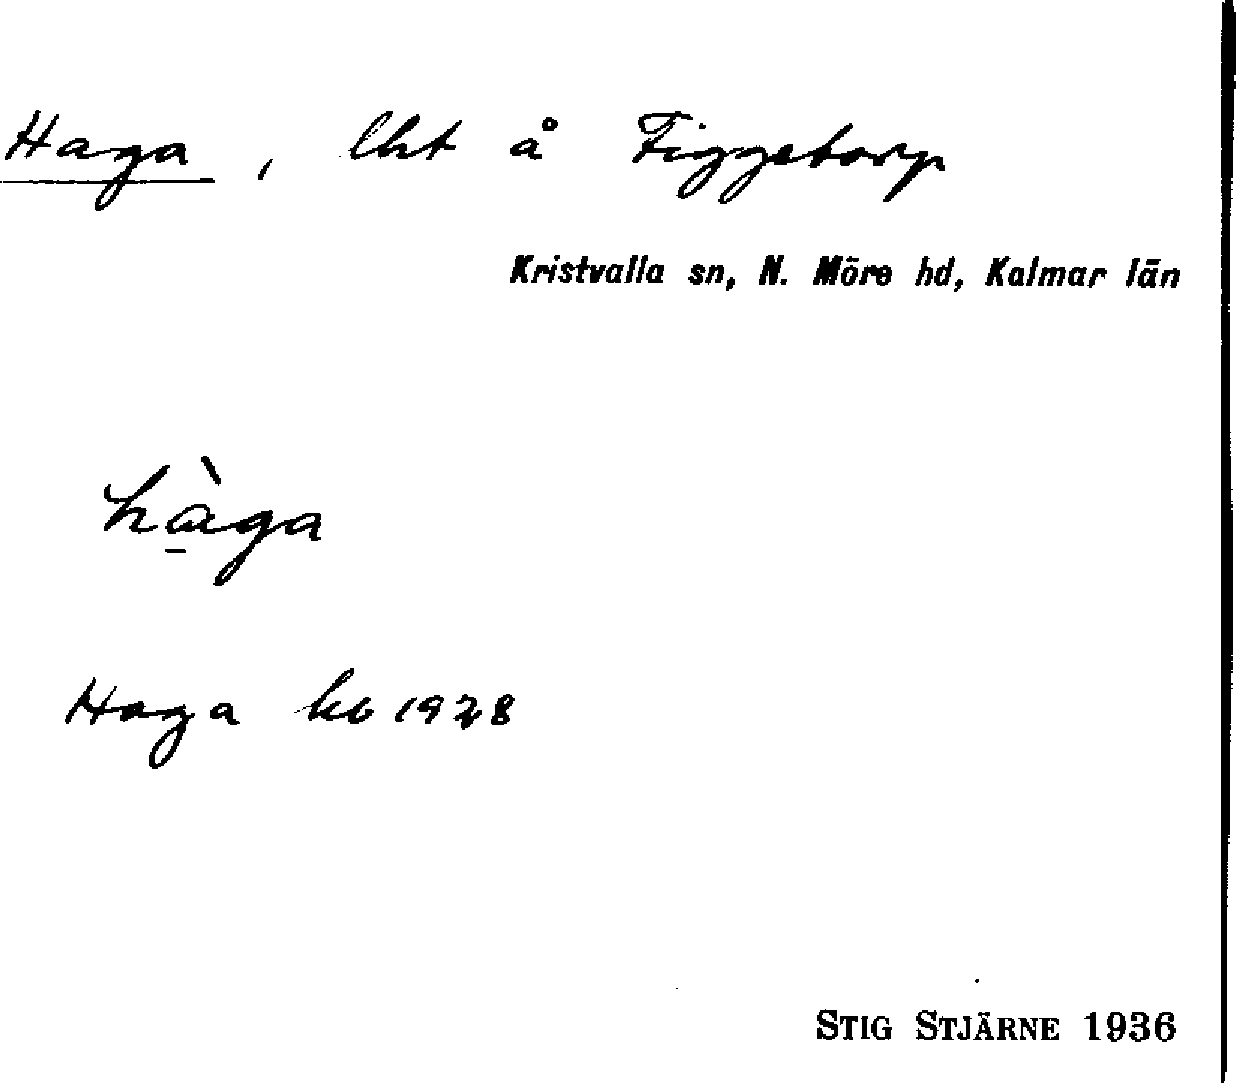 Haga, lht å Figgetorp
Kristvalla sn, N. Möre hd, Kalmar län
hàga
Haga kb 1928
STIG STJÄRNE 1936